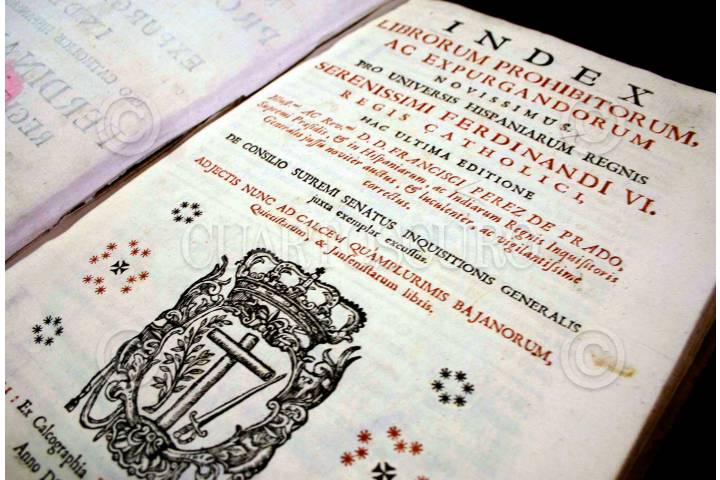 INDEX
LIBRORUM PROHIBITORUM,
AC EXPURGANDORUM
NOVISSIMUS.
PRO UNIVERSIS HISPANIARUM REGNIS
SERENISSIMI FERDINANDI VI.
REGIS CATHOLICI,
HAC ULTIMA EDITIONE
Illust.mi AC Rev.mi D. D. FRANCISCI PEREZ DE PRADO,
Supremi Præsidis, & in Hispaniarum, ac Indiarum Regnis Inquisitoris
Generalis jussu noviter auctus, & luculenter ac vigilantissime
correctus.
DE CONSILIO SUPREMI SENATUS INQUISITIONIS GENERALIS
juxta exemplar excussus.
ADJECTIS NUNC AD CALCEM QUAMPLURIMIS BAJANORUM,
Quietistarum, & Jansenistarum libris.
Ex Calcographia
Anno
CUARTOSCURO